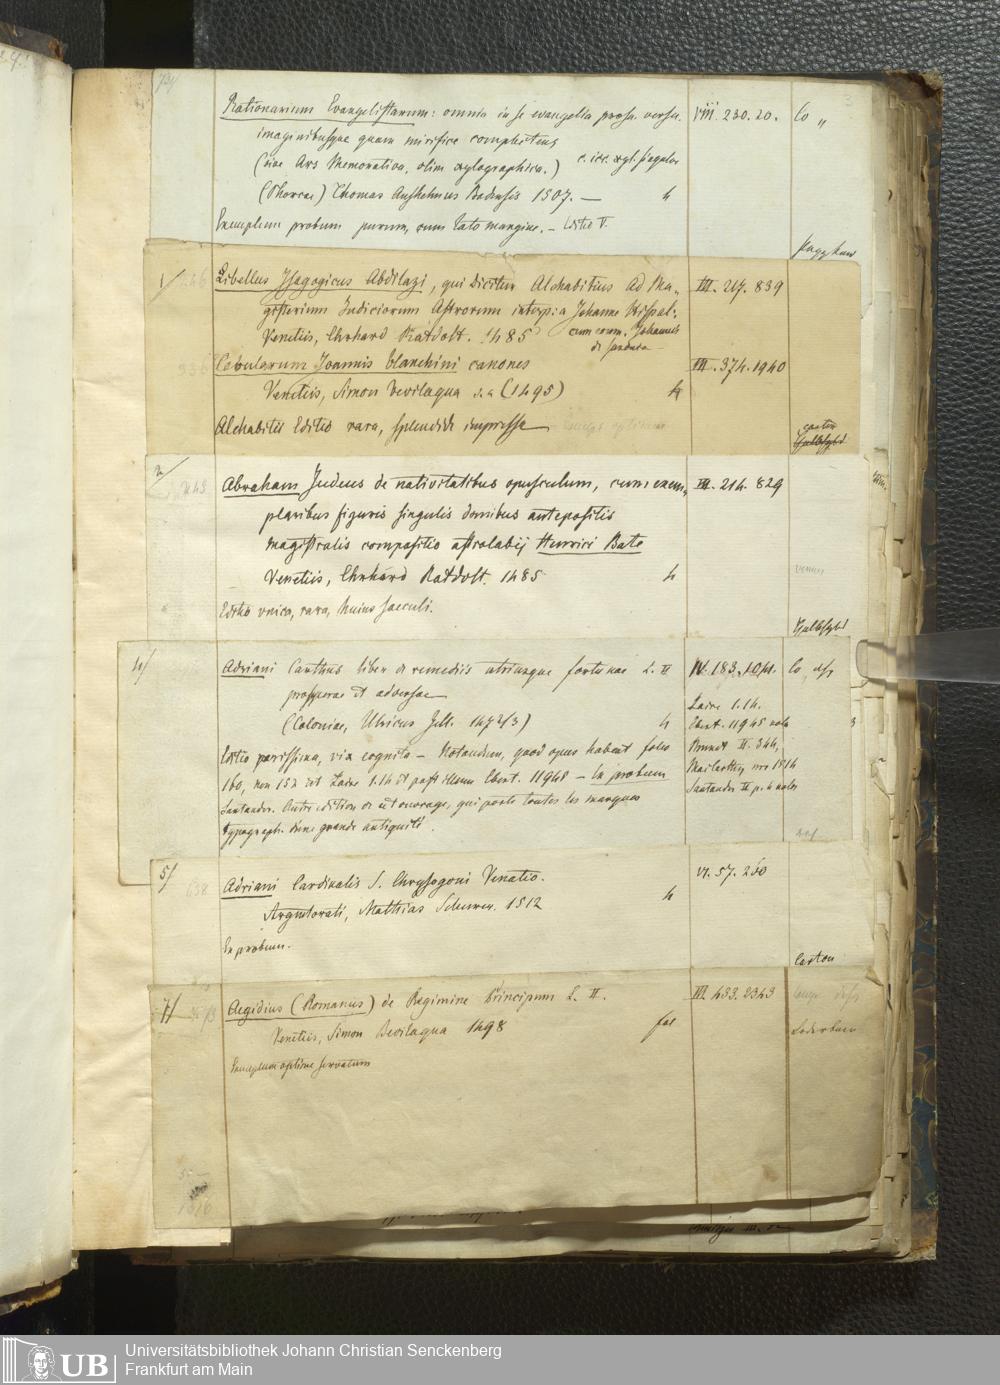 Rationarium Evangelistarum: omnia in se evangelia prosa, versu, VIII. 230. 20. Co „
imaginibusque quam mirifice complectens
(sive Ars Memorativa, olim xylographica.)
(Phorcae) Thomas Anshelmus Badensis 1507. — 4
Exemplum probum purum, cum lato margine. — Editio V.
1/ Libellus Ysagogicus Abdilazi, qui dicitur Alchabitius ad Ma- III. 217. 839
gisterium Judiciorum Astrorum interp: a Johanne Hispal:
Venetiis, Erhard Ratdolt. 1485 cum comm. Johannis
de Saxonia
Tabularum Joannis blanchini canones III. 374. 1940
Venetiis, Simon Bevilaqua s.a (1495) 4
Alchabitii Editio rara, splendide impressa
carton
2/ Abraham Judeus de nativitatibus opusculum, cum exem- III. 214. 829
plaribus figuris singulis domibus antepositis
magistralis compositio astrolabij Henrici Bate
Venetiis, Erhard Ratdolt. 1485 4
Editio unica, rara, huius saeculi.
4/ Adriani Carthus liber de remediis utriusque fortunae L. II IV. 183. Co
prosperae et adversae
(Coloniae, Ulricus Zell. 1472/3) 4
Laire 1. 14.
Ebert. 11945
Editio rarissima, vix cognita — Notandum, quod opus habeat folio Brunet II. 344,
160, non 152 ut Laire 1.14 et post illum Ebert. 11948 — Ex probum
Santander. Autre edition de cet ouvrage, qui porte toutes les marques
typograph. d'une grande antiquité.
5/ 638 Adriani Cardinalis S. Chrysogoni Venatio. VI. 57. 250
Argentorati, Matthias Schurer. 1512 4
Ex probum.
Carton
7/ Aegidius (Romanus) de Regimine Principum L. II. III. 433. 2343
Venetiis, Simon Bevilaqua 1498 fol
Exemplum optime servatum
Lederband
UB
Universitätsbibliothek Johann Christian Senckenberg
Frankfurt am Main